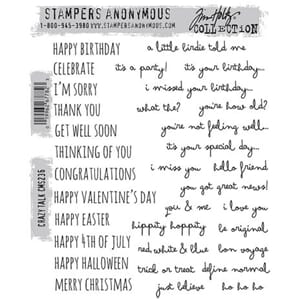 STAMPERS ANONYMOUS
1-800-945-3980 WWW.STAMPERSANONYMOUS.COM
Tim Holtz
COLLECTION
CRAZY TALK CMS226
HAPPY BIRTHDAY
CELEBRATE
I'M SORRY
THANK YOU
GET WELL SOON
THINKING OF YOU
CONGRATULATIONS
HAPPY VALENTINE'S DAY
HAPPY EASTER
HAPPY 4TH OF JULY
HAPPY HALLOWEEN
MERRY CHRISTMAS
a little birdie told me
it's a party! it's your birthday...
i missed your birthday...
what the? you're how old?
you're not feeling well...
it's your special day...
i miss you hello friend
you got great news!
you & me i love you
hippity hoppity be original
red white & blue bon voyage
trick or treat define normal
just believe ho ho ho